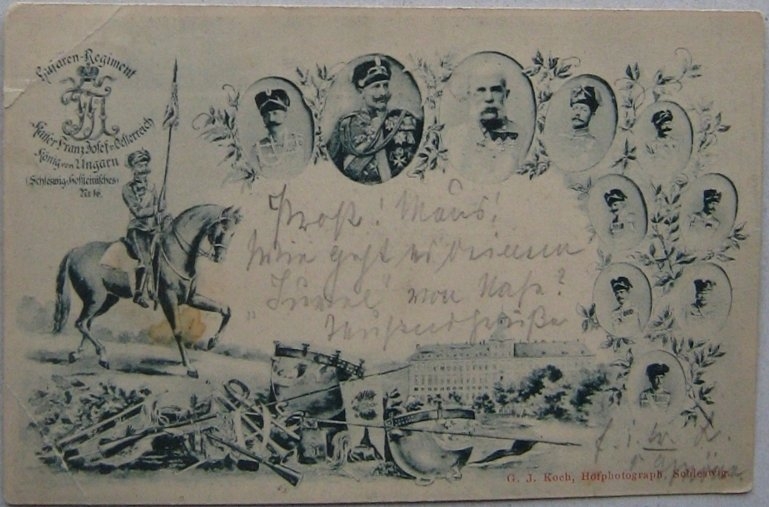 Husaren-Regiment
FJI
Kaiser Franz Josef v. Oesterreich
König von Ungarn
(Schleswig-Holsteinisches)
Nr. 16.
Prost! Maus!
Wie geht es Deinem
"Juwel" von Nase?
Tausend Grüße
G. J. Koch, Hofphotograph, Schleswig.